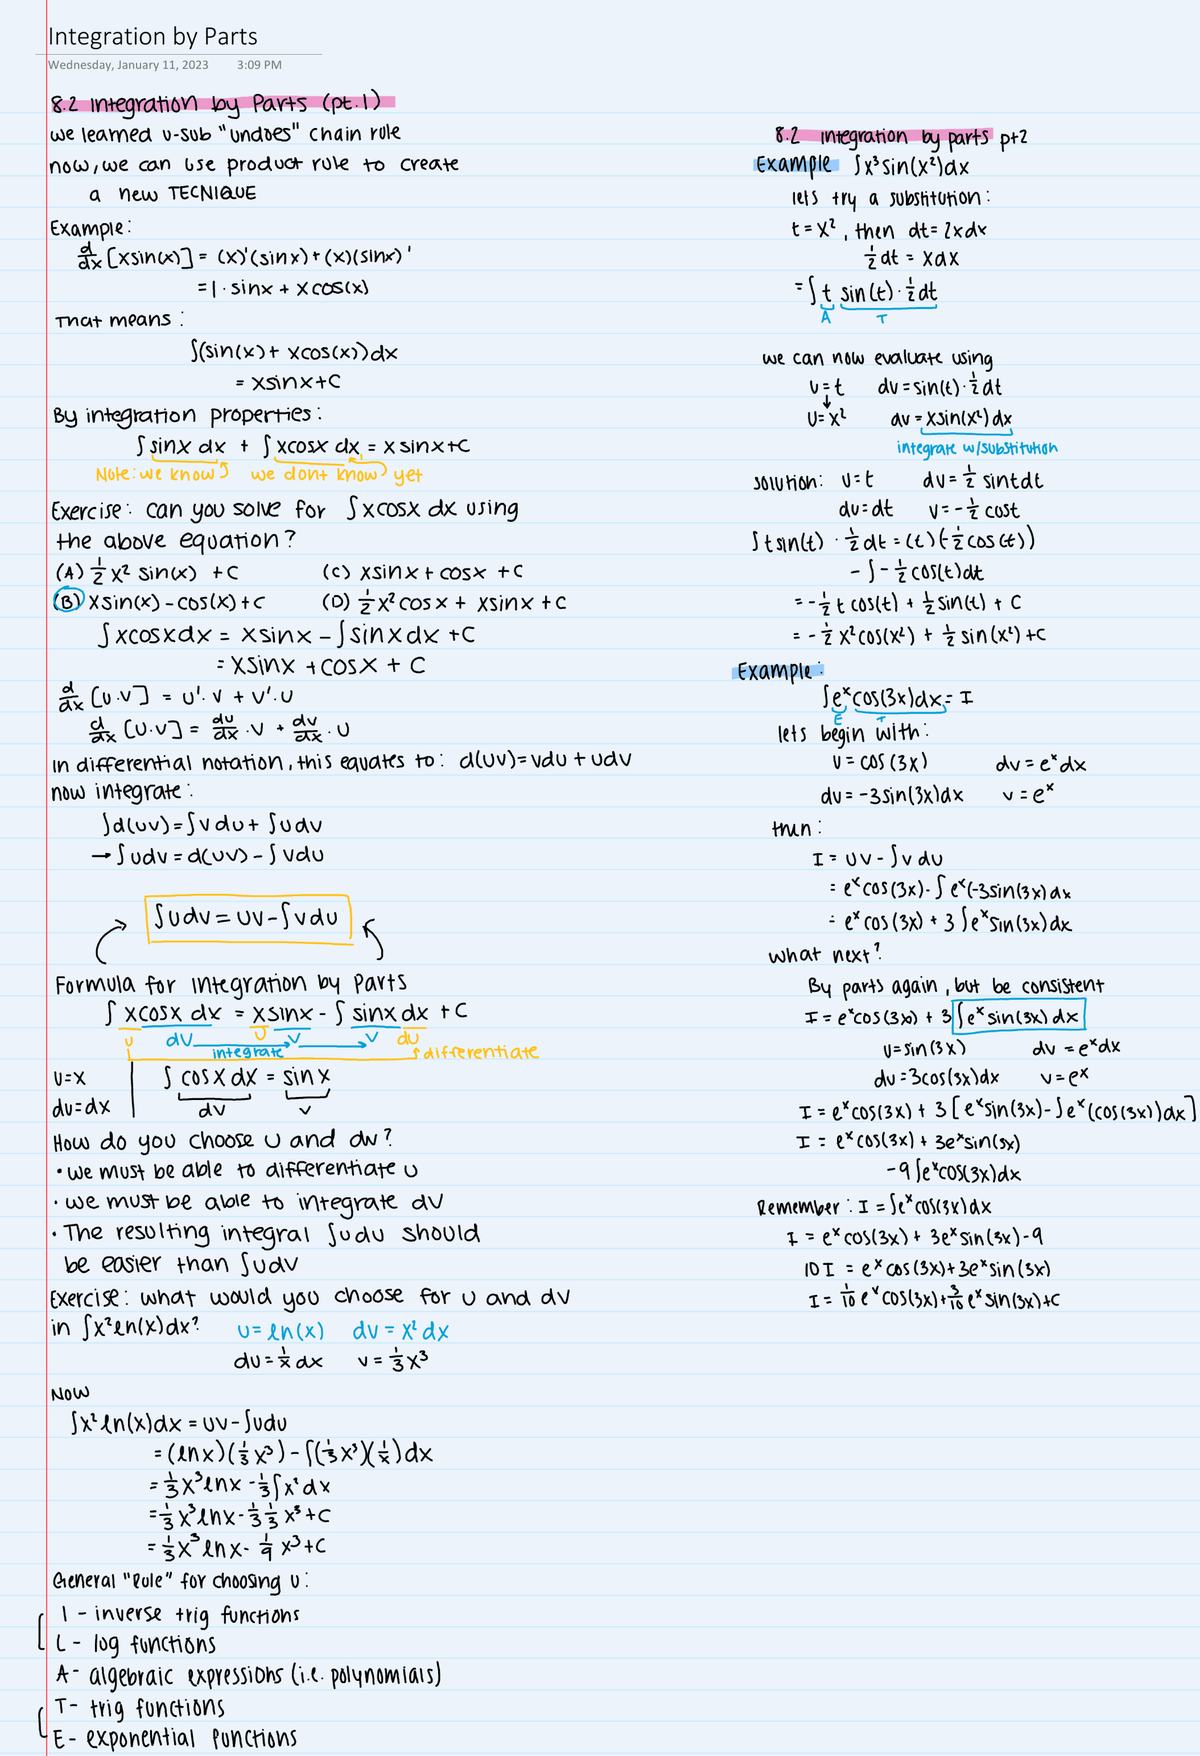 Integration by Parts
Wednesday, January 11, 2023 3:09 PM
8.2 Integration by Parts (pt.1)
we learned u-sub "undoes" chain rule
now, we can use product rule to create
a new TECNIQUE
Example:
d/dx [xsin(x)] = (x)'(sinx)+(x)(sinx)'
= 1 · sinx + xcos(x)
That means:
∫(sin(x)+ xcos(x))dx
= xsinx+C
By integration properties:
∫ sinx dx + ∫ xcosx dx = x sinx+C
Note: we know we dont know yet
Exercise: can you solve for ∫xcosx dx using
the above equation?
(A) 1/2 x² sin(x) +C (C) xsinx + cosx +C
(B) xsin(x) - cos(x)+C (D) 1/2 x² cosx + xsinx +C
∫xcosxdx = xsinx - ∫sinxdx +C
= xsinx +cosx + C
d/dx [u·v] = u'·v + v'·u
d/dx [u·v] = du/dx ·v + dv/dx · u
In differential notation, this equates to: d(uv)=vdu+udv
now integrate:
∫d(uv)=∫vdu+ ∫udv
→ ∫udv = d(uv) - ∫vdu
∫udv = uv-∫vdu
Formula for integration by Parts
∫ xcosx dx = xsinx - ∫ sinx dx + C
u dv u v v du
integrate differentiate
u=x ∫ cosx dx = sinx
du=dx dv v
How do you choose u and dv?
• we must be able to differentiate u
• we must be able to integrate dv
• The resulting integral ∫udu should
be easier than ∫udv
Exercise: what would you choose for u and dv
in ∫x²ln(x)dx? u=ln(x) dv = x² dx
du = 1/x dx v = 1/3 x³
Now
∫x²ln(x)dx = uv-∫udu
= (lnx)(1/3 x³) - ∫(1/3 x³)(1/x)dx
= 1/3 x³lnx - 1/3∫x²dx
= 1/3 x³lnx - 1/3 1/3 x³+C
= 1/3 x³ lnx - 1/9 x³+C
General "Rule" for choosing u:
I - inverse trig functions
L - log functions
A - algebraic expressions (i.e. polynomials)
T - trig functions
E - exponential functions
8.2 integration by parts pt2
Example ∫x³sin(x²)dx
lets try a substitution:
t=x², then dt=2xdx
1/2 dt = xdx
=∫t sin(t)· 1/2 dt
A T
we can now evaluate using
u=t dv=sin(t)· 1/2 dt
↓
u=x² dv = xsin(x²)dx
integrate w/substitution
solution: u=t dv= 1/2 sintdt
du=dt v=-1/2 cost
∫tsin(t) · 1/2 dt = (t)(-1/2 cos(t))
- ∫- 1/2 cos(t)dt
= - 1/2 t cos(t) + 1/2 sin(t) + C
= - 1/2 x²cos(x²) + 1/2 sin(x²)+C
Example:
∫eˣcos(3x)dx = I
E T
lets begin with:
u= cos(3x) dv=eˣdx
du = -3sin(3x)dx v = eˣ
then:
I = uv - ∫v du
= eˣcos(3x)-∫eˣ(-3sin(3x)dx
= eˣcos(3x) + 3∫eˣsin(3x)dx
what next?
By parts again, but be consistent
I = eˣcos(3x) + 3∫eˣsin(3x)dx
u=sin(3x) dv =eˣdx
du=3cos(3x)dx v=eˣ
I = eˣcos(3x) + 3[eˣsin(3x)-∫eˣ(cos(3x))dx]
I = eˣcos(3x) + 3eˣsin(3x)
-9∫eˣcos(3x)dx
Remember: I =∫eˣcos(3x)dx
I = eˣcos(3x)+ 3eˣsin(3x)-9
10I = eˣcos(3x)+3eˣsin(3x)
I = 1/10 eˣcos(3x)+3/10 eˣsin(3x)+C